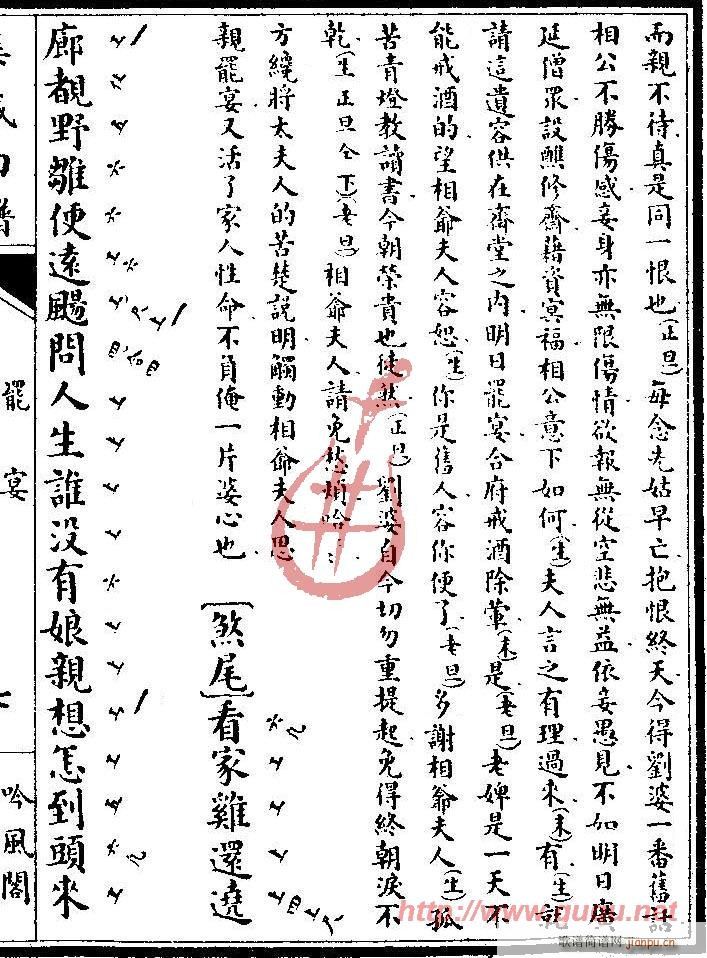 而親不待真是同一恨也(正旦)每念先姑早亡抱恨終天今得劉婆一番舊話
相公不勝傷感妾身亦無限傷情欲報無從空悲無益依妾愚見不如明日廣
延僧眾設醮修齋藉資冥福相公意下如何(生)夫人言之有理過來(末)有(生)
請這遺容供在齋堂之內明日罷宴合府戒酒除葷(末)是(老旦)老婢是一天不
能戒酒的望相爺夫人容恕(生)你是舊人容你便了(老旦)多謝相爺夫人(生)孤
苦青燈教讀書今朝榮貴也徒然(正旦)劉婆自今切勿重提起免得終朝淚不
乾(生正旦仝下)老旦相爺夫人請免愁煩
方纔將太夫人的苦楚說明觸動相爺夫人思
親罷宴又活了家人性命不負俺一片婆心也
[煞尾]看家雞還遶
廊覩野雛便遠颺問人生誰沒有娘親想怎到頭來
集成曲譜
罷宴
吟風閣
http://www.qupu.net
歌谱简谱网
jianpu.cn